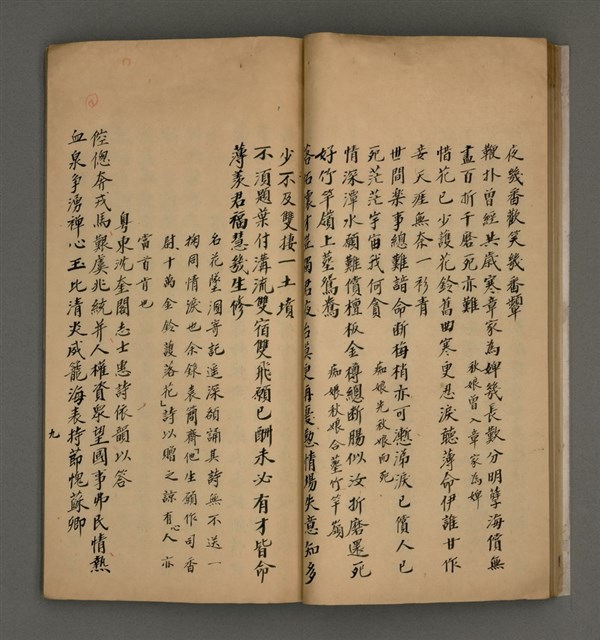 夜幾番歡笑幾番顰
鞭扑曾經共歲寒章家為婢幾長歎分明孽海償無
秋娘曾入章家為婢
盡百折千磨死亦難
惜花已少護花鈴舊曲寒更忍淚聽薄命伊誰甘作
妾天涯無奈一衫青
世間樂事總難諳命斷梅梢亦可慚涕淚已償人已
死茫茫宇宙我何貪
痴娘先秋娘而死
情深潭水願難償檀板金樽總斷腸似汝折磨還死
好竹竿嶺上塟鴛鴦
痴娘秋娘合塟竹竿嶺
落拓懷才 君 再 情場失意知多
少不及雙棲一土墳
不須題葉付溝流雙宿雙飛願已酬未必有才皆命
薄羨君福慧幾生修
名花墜溷寄託遥深頻誦其詩無不送一
掬同情淚也余錄袁爾齋「他生願作司香
尉、十萬金鈴護落花」詩以贈之諒有心人亦
當首肯也
粤東沈奎閣志士惠詩依韻以答
倥傯奔戎馬艱虞兆統并人權資眾望國事弗民情熱
血泉爭湧禪心玉比清炎威籠海表持節愧蘇卿
九